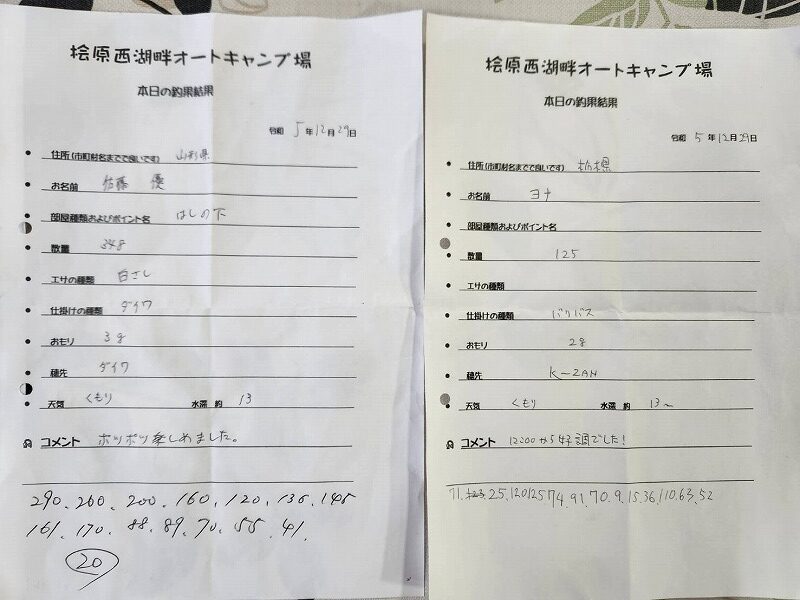 桧原西湖畔オートキャンプ場
本日の釣果結果
令和 5年12月29日
住所(市町村名までで良いです) 山形県
お名前 佐藤 優
部屋種類およびポイント名 はしの下
数量 348
エサの種類 白さし
仕掛けの種類 ダイワ
おもり 3g
穂先 ダイワ
天気 くもり 水深 約 13
コメント ポツポツ楽しめました。
290、260、200、160、120、136、145
161、170、88、89、70、55、41、
20
桧原西湖畔オートキャンプ場
本日の釣果結果
令和 5年12月29日
住所(市町村名までで良いです) 栃木県
お名前 ヨナ
部屋種類およびポイント名
数量 125
エサの種類
仕掛けの種類 バリバス
おもり 2g
穂先 K-ZAN
天気 くもり 水深 約 13m
コメント 12:00から好調でした!
71、25、120、125、74、91、70、9、15、36、110、63、52